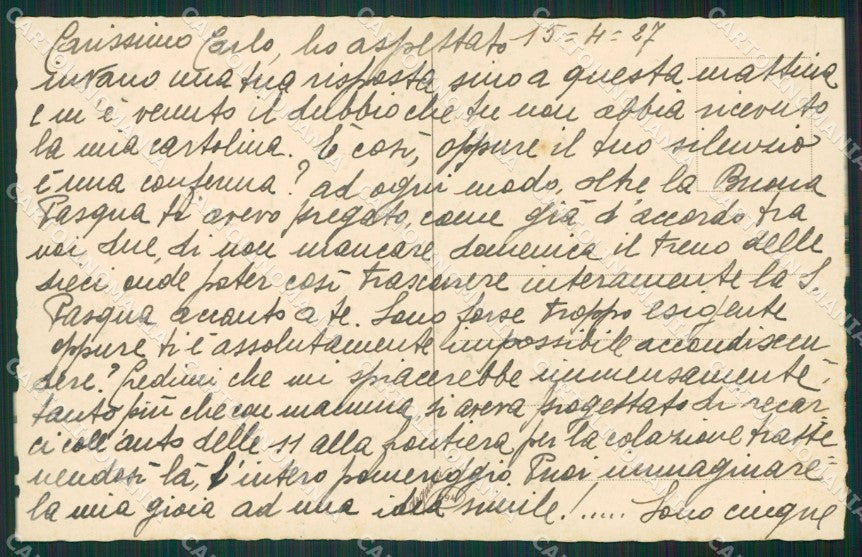 Carissimo Carlo, ho aspettato 15-4-27
invano una tua risposta sino a questa mattina
e m'è venuto il dubbio che tu non abbia ricevuto
la mia cartolina. È così, oppure il tuo silenzio
è una conferma? ad ogni modo, oltre la Buona
Pasqua ti avevo pregato, come già d'accordo tra
noi due, di non mancare domenica il treno delle
dieci onde poter così trascorrere interamente la S.
Pasqua accanto a te. Sono forse troppo esigente
oppure ti è assolutamente impossibile accondiscen
dere? Credimi che mi spiacerebbe immensamente,
tanto più che con mamma si aveva progettato di recar-
ci coll'auto delle 11 alla frontiera per la colazione tratte
nendosi là, l'intero pomeriggio. Puoi immaginare
la mia gioia ad una idea simile!..... Sono cinque